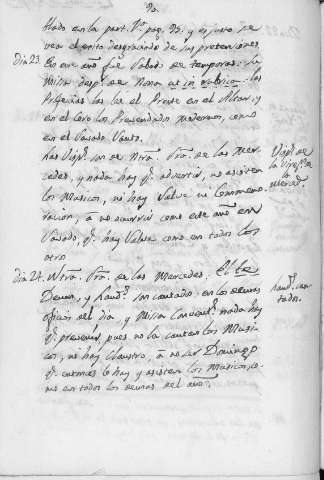 90.
tado en la part. 1.ª pag. 95. y es justo se
vea el exito desgraciado de sus pretensiones
Dia 23. En este año fue Sabado de temporas. la
Misa desp.s de Nona ut in rubrica: las
Profecias las lee el Preste en el Altar, y
en el Coro los Presendados modernos, como
en el Sabado Santo.
Las Visp.s son de Ntra. Sra. de las Mer-
cedes, y nada hay q.e advertir, no asisten
los Musicos, no hay Salve ni Conmemo-
racion, a no ocurrir como este año en
Sabado, q.e hay Salve como en todos los
otros
Visp.s de
la Virg.n de
la
Merced.
Dia 24. Ntra. Sra. de las Mercedes. El te
Deum, y Laud.s son cantados: en los demas
oficios del dia, y Misa Convent.l nada hay
q.e prevenir, pues no la cantan los Musi-
cos, no hay Claustro, a no ser Domingo
q.e entonces lo hay y asisten los Musicos, co-
mo en todos los demas del año.
Laud.s can-
tados.